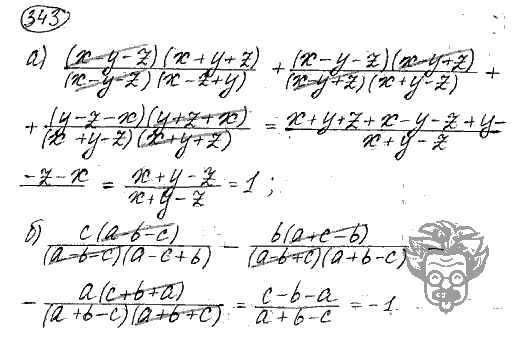 343
а) (x-y-z)(x+y+z)/(x-y-z)(x-z+y) + (x-y-z)(x-y+z)/(x-y+z)(x+y-z) +
+ (y-z-x)(y+z+x)/(x+y-z)(x+y+z) = x+y+z+x-y-z+y-/x+y-z
-z-x = x+y-z/x+y-z = 1;
б) c(a-b-c)/(a-b-c)(a-c+b) - b(a+c-b)/(a-b+c)(a+b-c) -
- a(c+b+a)/(a+b-c)(a+b+c) = c-b-a/a+b-c = -1